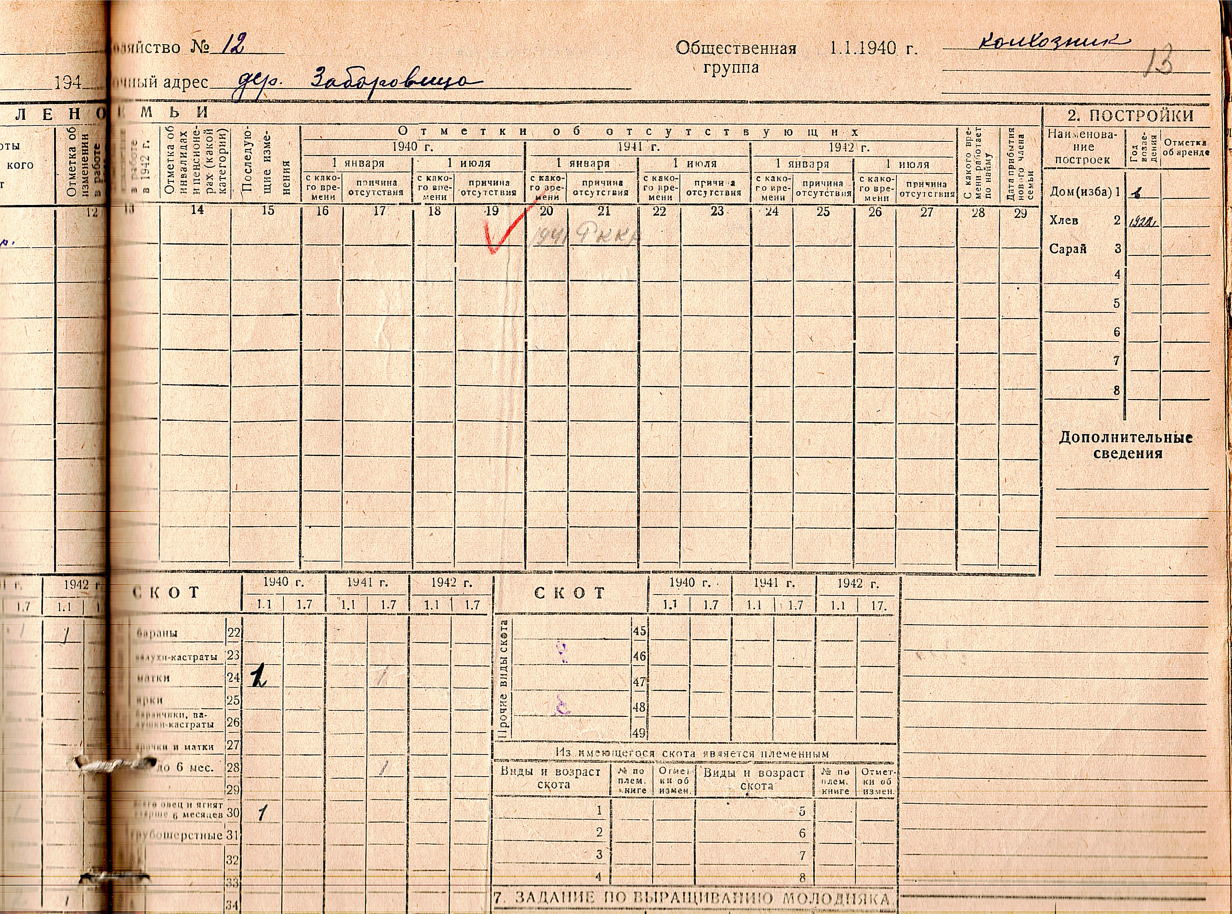 яйство № 12
Общественная группа 1.1.1940 г. колхозник
13
194
чный адрес дер. Заборовица
ЛЕНО
МЬИ
кого
Отметка об изменении в работе
в работе в 1942 г.
Отметка об инвалидах и пенсионерах (какой категории)
Последующие изменения
Отметки об отсутствующих
1940 г. 1941 г. 1942 г.
1 января 1 июля 1 января 1 июля 1 января 1 июля
с какого времени причина отсутствия с какого времени причина отсутствия с какого времени причина отсутствия с какого времени причина отсутствия с какого времени причина отсутствия с какого времени причина отсутствия
С какого времени работает по найму
Дата прибытия нового члена семьи
12 13 14 15 16 17 18 19 20 21 22 23 24 25 26 27 28 29
1941 РККА
2. ПОСТРОЙКИ
Наименование построек
Год возведения
Отметка об аренде
Дом(изба) 1
Хлев 2
Сарай 3
4
5
6
7
8
Дополнительные сведения
1942 г
1.7 1.1
СКОТ
1940 г. 1941 г. 1942 г.
1.1 1.7 1.1 1.7 1.1 1.7
бараны 22
валухи-кастраты 23
матки 24 1 1
ярки 25
баранчики, валушки-кастраты 26
ярочки и матки 27
до 6 мес. 28 1
29
Всего овец и ягнят старше 6 месяцев 30 1
грубошерстные 31
32
33
34
СКОТ
1940 г. 1941 г. 1942 г.
1.1 1.7 1.1 1.7 1.1 17.
Прочие виды скота
45
46
47
48
49
Из имеющегося скота является племенным
Виды и возраст скота № по плем. книге Отметки об измен. Виды и возраст скота № по плем. книге Отметки об измен.
1 5
2 6
3 7
4 8
7. ЗАДАНИЕ ПО ВЫРАЩИВАНИЮ МОЛОДНЯКА.